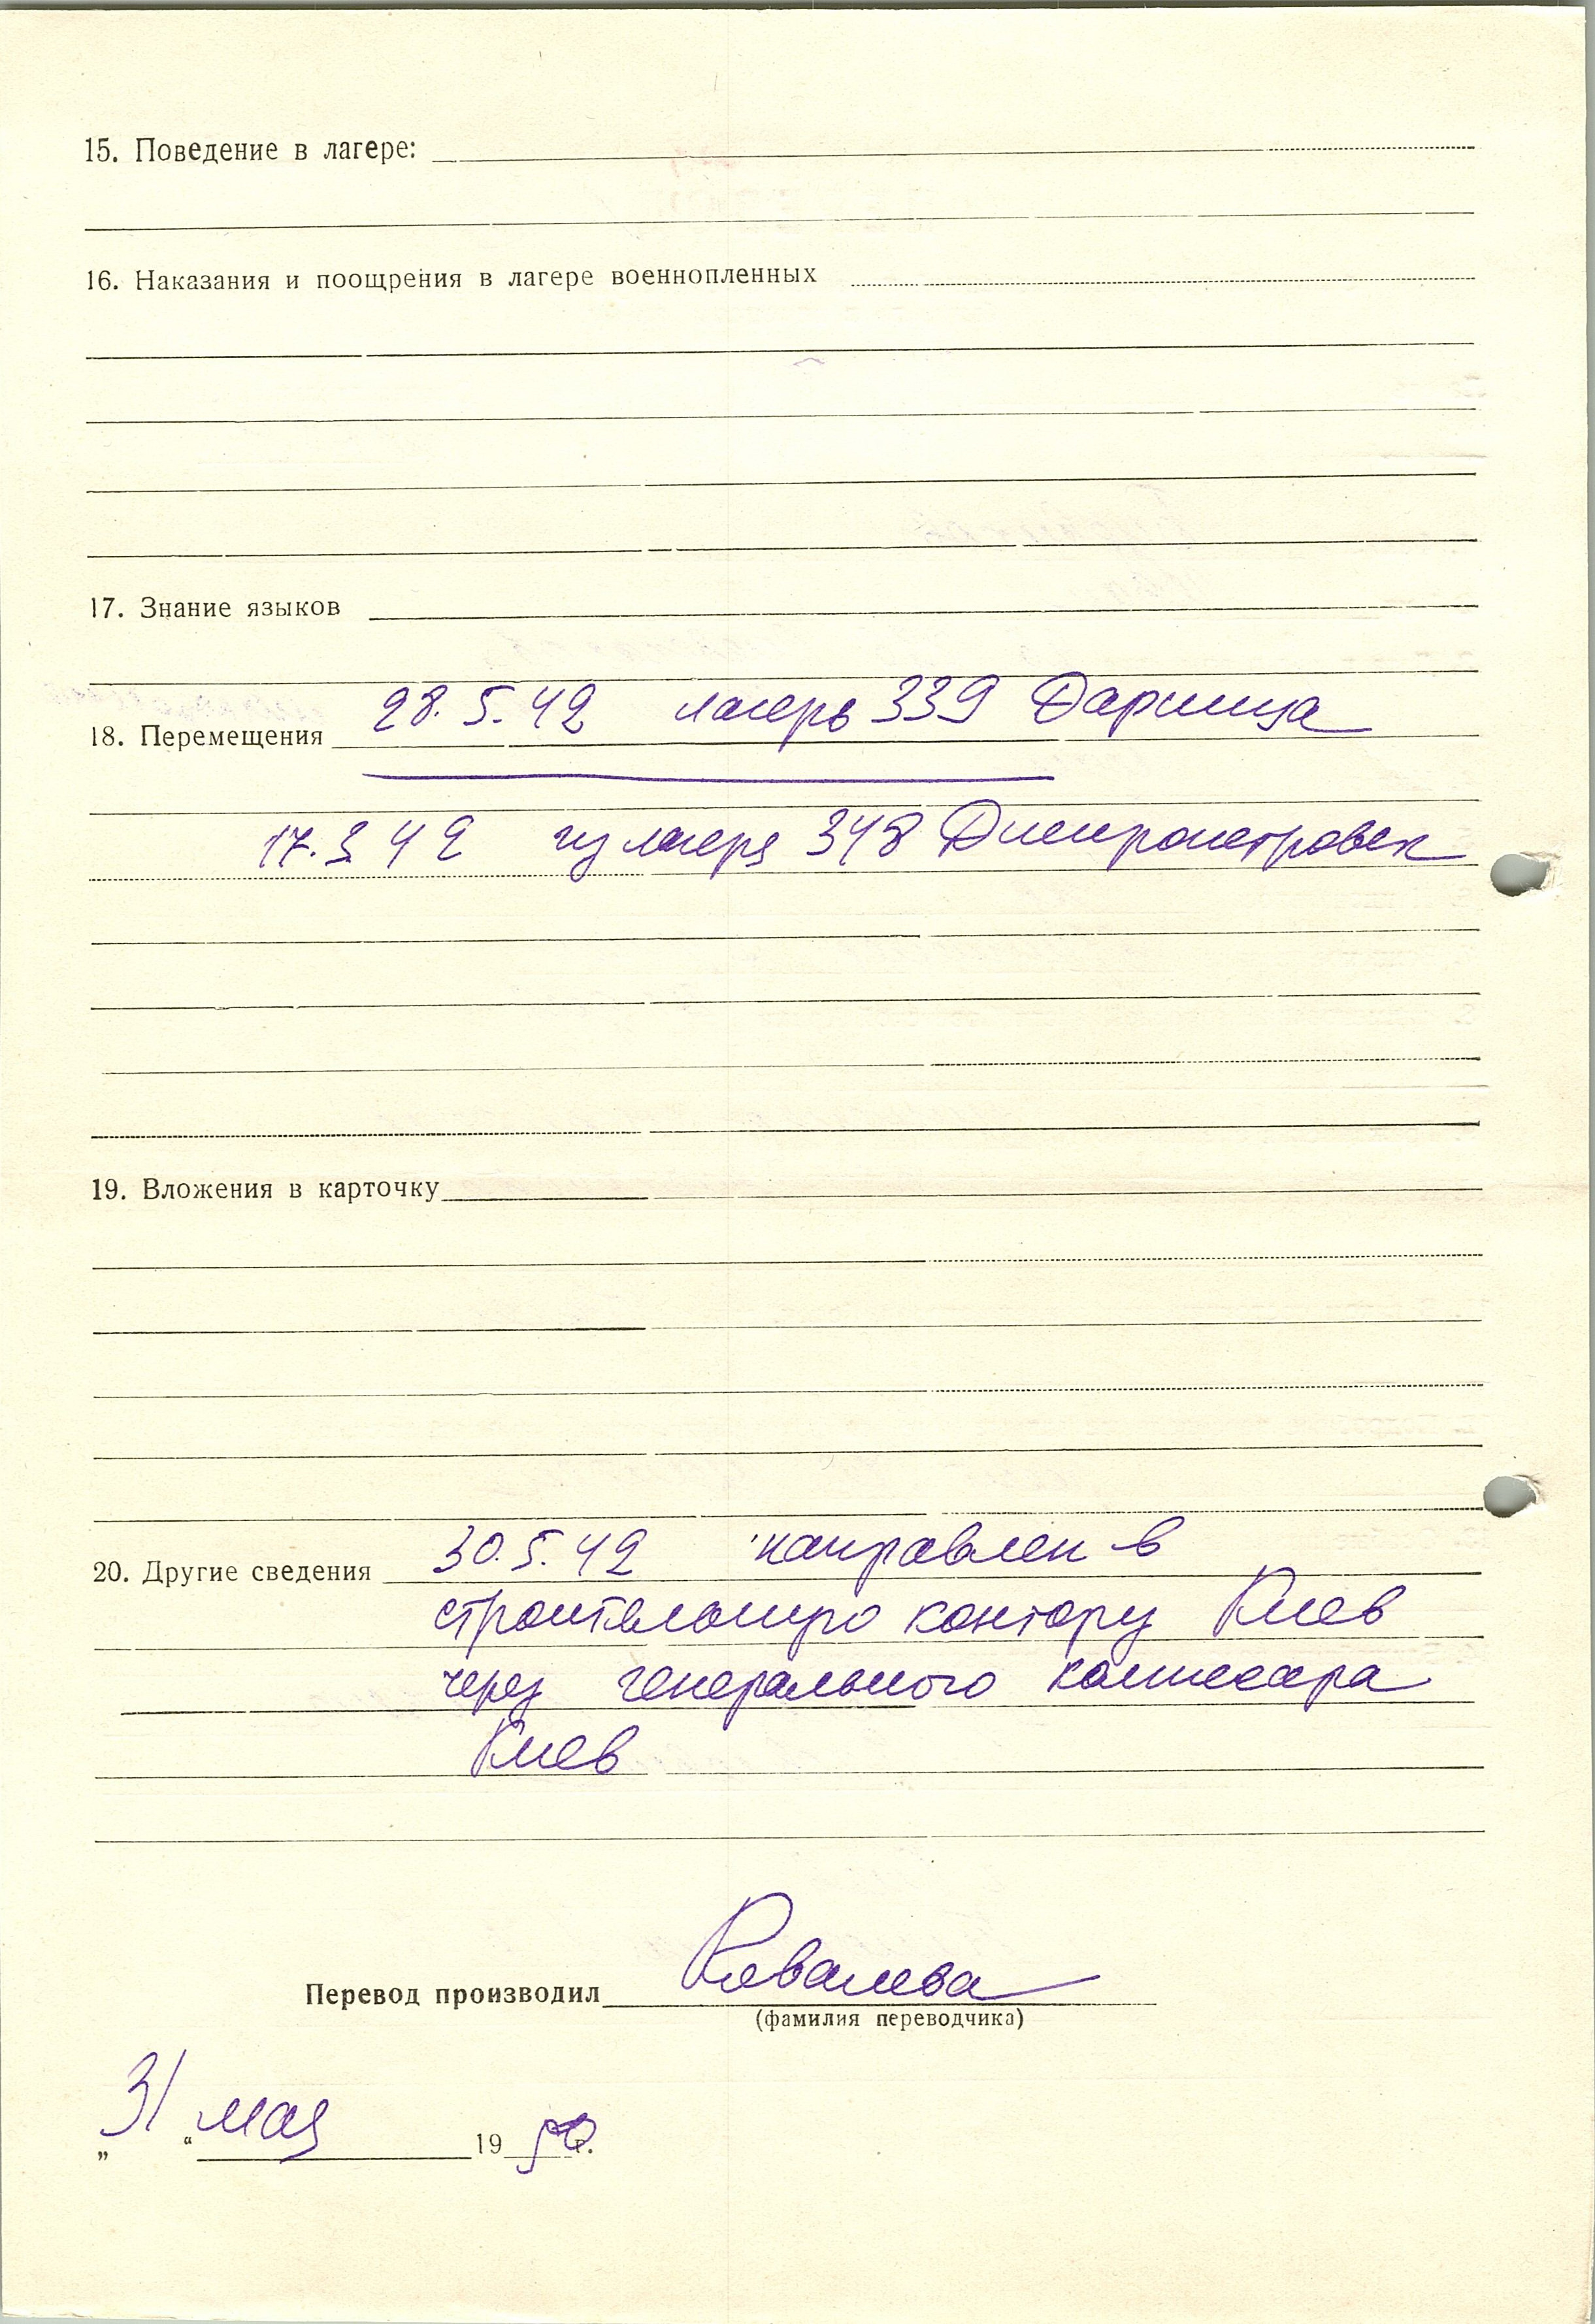 15. Поведение в лагере:
16. Наказания и поощрения в лагере военнопленных
17. Знание языков
18. Перемещения 28. 5. 42 лагерь 339 Дарница
17. 3 42 из лагеря 348 Днепропетровск
19. Вложения в карточку
20. Другие сведения 30. 5. 42 направлен в
строительную контору Киев
через генерального комиссара
Киев
Перевод производил Ковалева
(фамилия переводчика)
„31“ мая 1950 г.